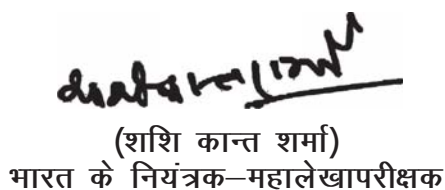 (शशि कान्त शर्मा)
भारत के नियंत्रक–महालेखापरीक्षक